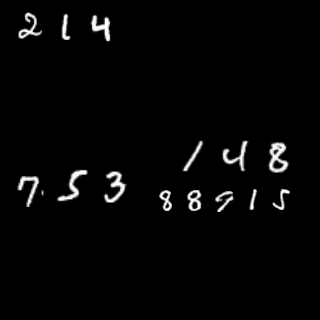 214
148
753
88915